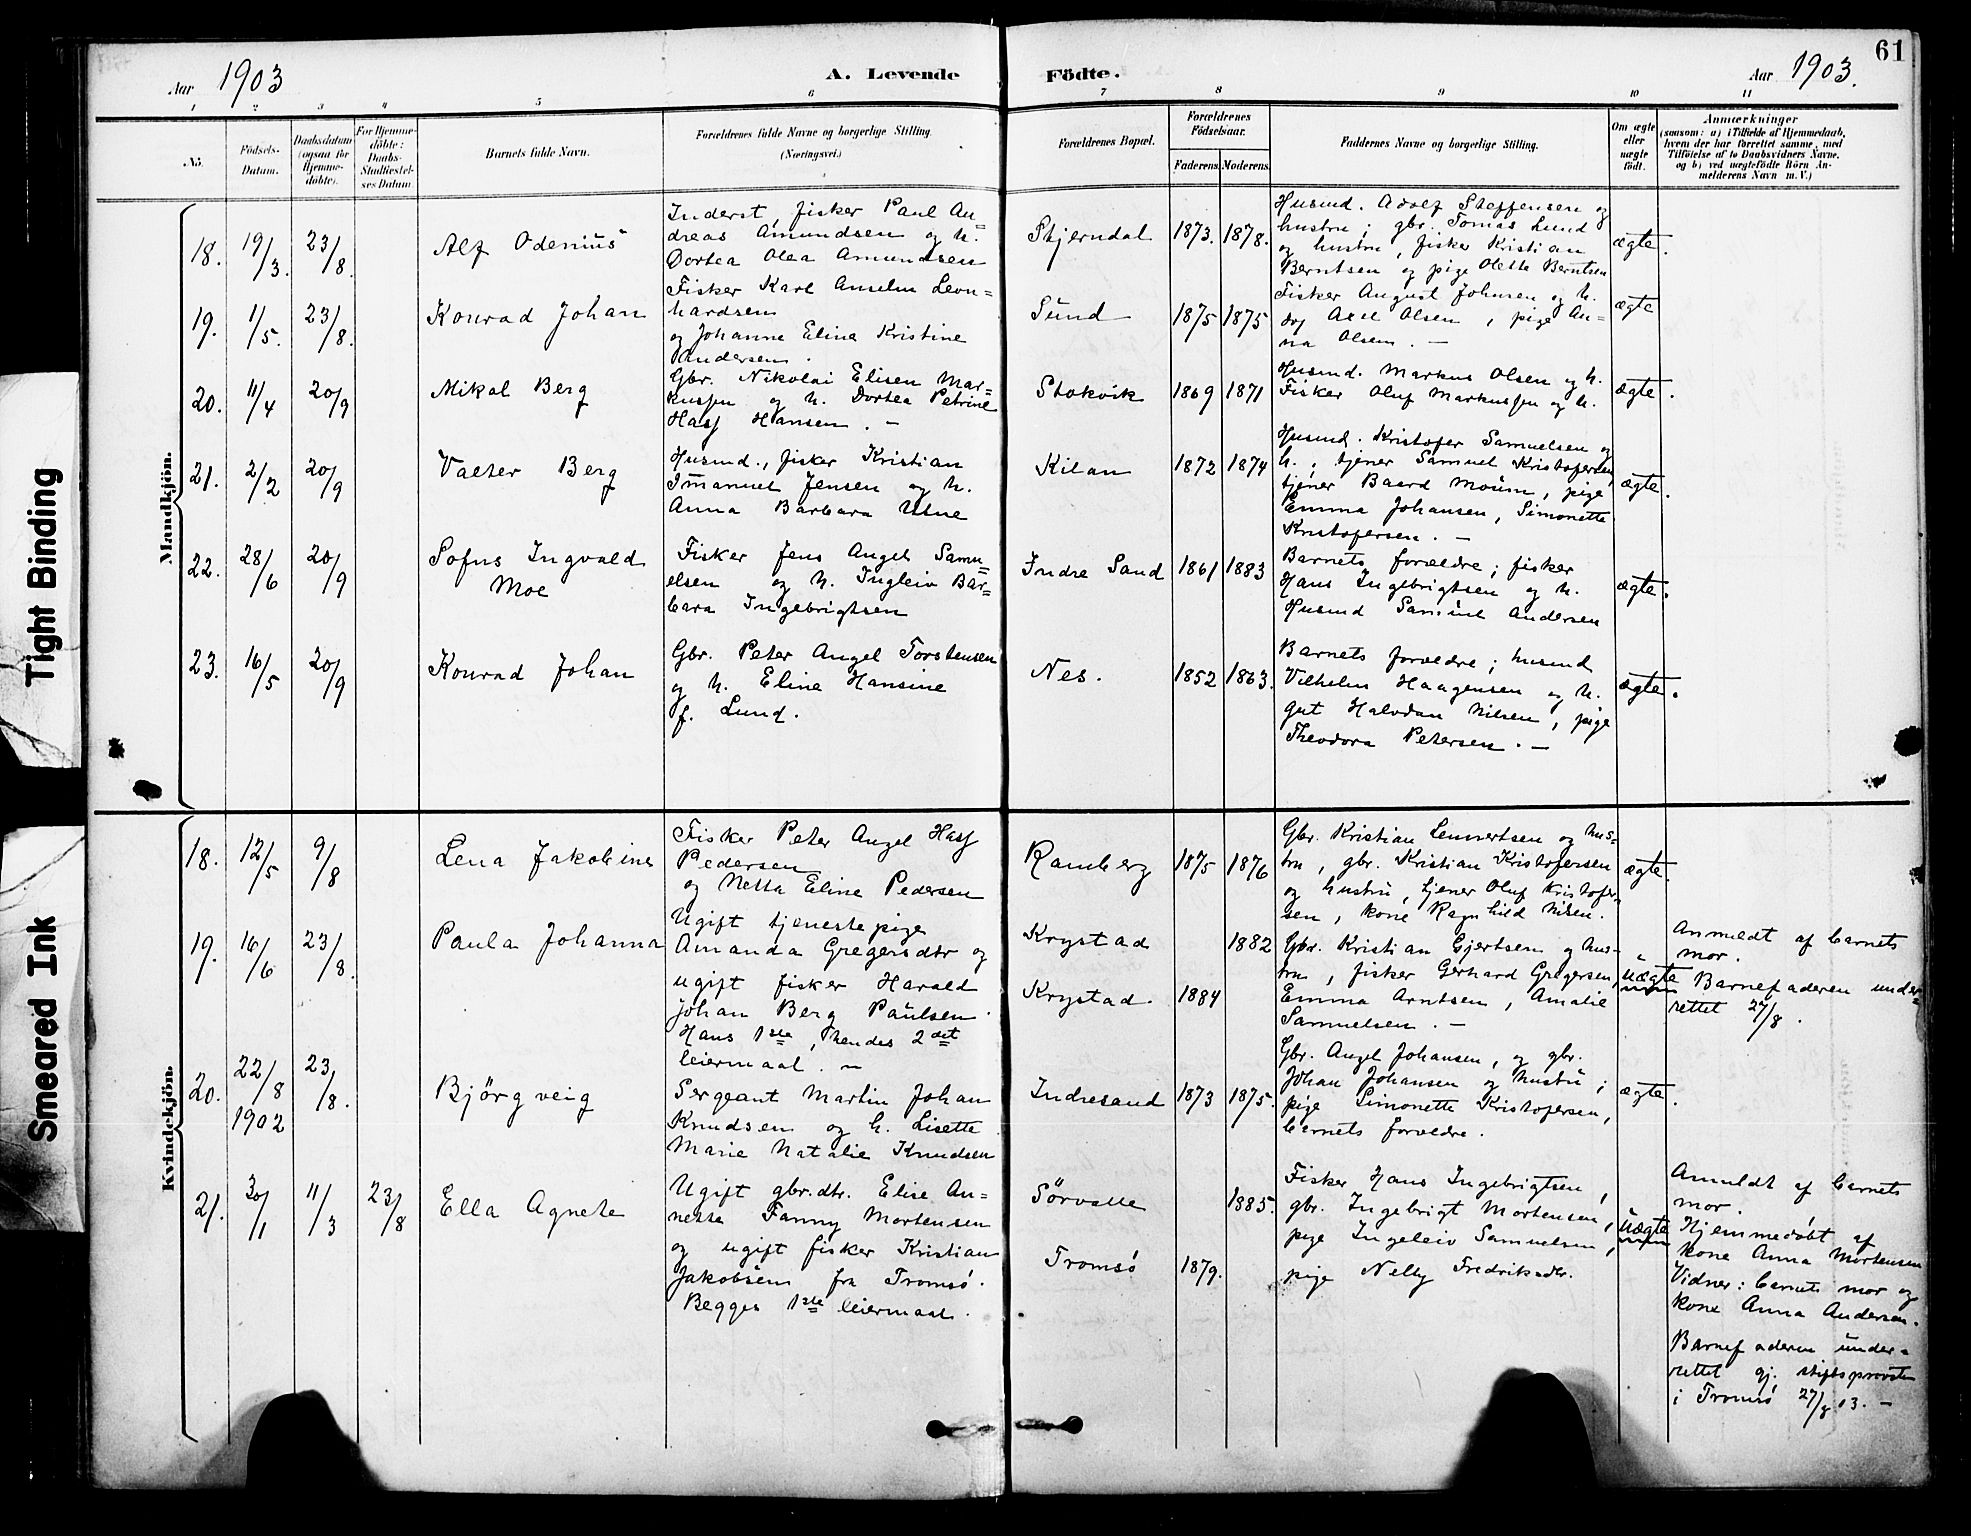 61
Aar 1903
A. Levende Födte.
Aar 1903.
1 2 3 4 5 6 7 8 9 10 11
No.
Födsels-
Datum.
Daabsdatum
(ogsaa for
Hjemme-
döbte).
For Hjemme-
döbte:
Daabs-
Stadfæstel-
ses Datum
Barnets fulde Navn.
Forældrenes fulde Navne og borgerlige Stilling.
(Næringsvei.)
Forældrenes Bopæl.
Forældrenes
Födselsaar.
Faderens.
Moderens.
Faddernes Navne og borgerlige Stilling.
Om ægte
eller
uægte
födt.
Anmærkninger
(saasom: a) i Tilfælde af Hjemmedaab,
hvem der har forrettet samme, med
Tilföielse af to Daabsvidners Navne,
og b) ved uægtefödte Börn An-
melderens Navn m. V.)
Mandkjön.
18. 19/3. 23/8.
Alf Odenius
Inderst, fisker Paul An=
dreas Amundsen og h.
Dortea Olea Amundsen
Skjerndal
1873. 1878.
Husmd. Adolf Steffensen og
hustru; gbr. Tomas Lund
og hustru, fisker Kristian
Berntsen og pige Oletta Berntsen
ægte.
19. 1/5. 23/8.
Konrad Johan
Fisker Karl Anselm Leon=
hardsen
og Johanne Elina Kristine
Andersen.
Sund
1875 1875
Fisker August Johnsen og h.
Axel Olsen, pige An=
na Olsen. —
ægte
20. 11/4 20/9
Mikal Berg
Gbr. Nikolai Elisen Mar=
kussen og h. Dortea Petrine
Hass Hansen. —
Stokvik
1869 1871
Husmd. Markus Olsen og h.
Fisker Oluf Markussen og h.
ægte.
21. 2/2 20/9
Valter Berg
Husmd., fisker Kristian
Imanuel Jensen og h.
Anna Barbara Utne
Kilan
1872 1874
Husmd. Kristofer Samuelsen og
h.; tjener Samuel Kristofersen,
tjener Baard Moum, pige
Emma Johansen, Simonette
Kristofersen. —
ægte.
22. 28/6 20/9
Sofus Ingvald
Moe
Fisker Jens Angel Samu=
elsen og h. Ingleiv Bar=
bara Ingebrigtsen
Indre Sand
1861 1883
Barnets forældre; fisker
Hans Ingebrigtsen og h.
Husmd Samuel Andersen
ægte.
23. 16/5 20/9
Konrad Johan
Gbr. Peter Angel Torstensen
og h. Eline Hansine
f. Lund.
Nes.
1852 1863.
Barnets forældre; husmd
Vilhelm Haagensen og h.
gut Halvdan Nilsen, pige
Theodora Petersen. —
ægte.
Kvindekjön.
18. 12/5 9/8
Lena Jakobine
Fisker Peter Angel Hass
Pedersen
og Netta Eline Pedersen
Ramberg
1875 1876
Gbr. Kristian Lennertsen og hus=
tru, gbr. Kristian Kristofersen
og hustru, tjener Oluf Kristofer=
sen, kone Ragnhild Nilsen.
ægte.
19. 16/6 23/8.
Paula Johanna
Ugift tjenestepige
Amanda Gregersdtr og
ugift fisker Harald
Johan Berg Paulsen.
Hans 1ste, hendes 2det
leiermaal. —
Krystad
1882
Krystad.
1884
Gbr. Kristian Gjertsen og hus-
tru, fisker Gerhard Gregersen,
Emma Arntsen, Amalie
Samuelsen. —
uægte
Anmeldt af barnets
mor.
Barnefaderen under=
rettet 27/8.
20. 22/8 1902 23/8.
Björgveig
Sergeant Martin Johan
Knudsen og h. Lisette
Marie Natalie Knudsen
Indresand
1873 1875.
Gbr. Angel Johansen, og gbr.
Johan Johansen og hustru;
pige Simonette Kristofersen,
barnets forældre.
ægte.
21. 30/1 11/3 23/8
Ella Agnete
Ugift gbr.dtr. Elise An=
netta Fanny Mortensen
og ugift fisker Kristian
Jakobsen fra Tromsö.
Begges 1ste leiermaal.
Sörvalle
1885.
Tromsö
1879.
Fisker Hans Ingebrigtsen,
gbr. Ingebrigt Mortensen,
pige Ingeleiv Samuelsen,
pige Nelly Fredriksdtr.
uægte
Anmeldt af barnets
mor.
Hjemmedöbt af
kone Anna Mortensen
Vidner: barnets mor og
kone Anna Andersen.
Barnefaderen under=
rettet gj. stiftsprovsten
i Tromsö 27/8 03. —
Tight Binding
Smeared Ink